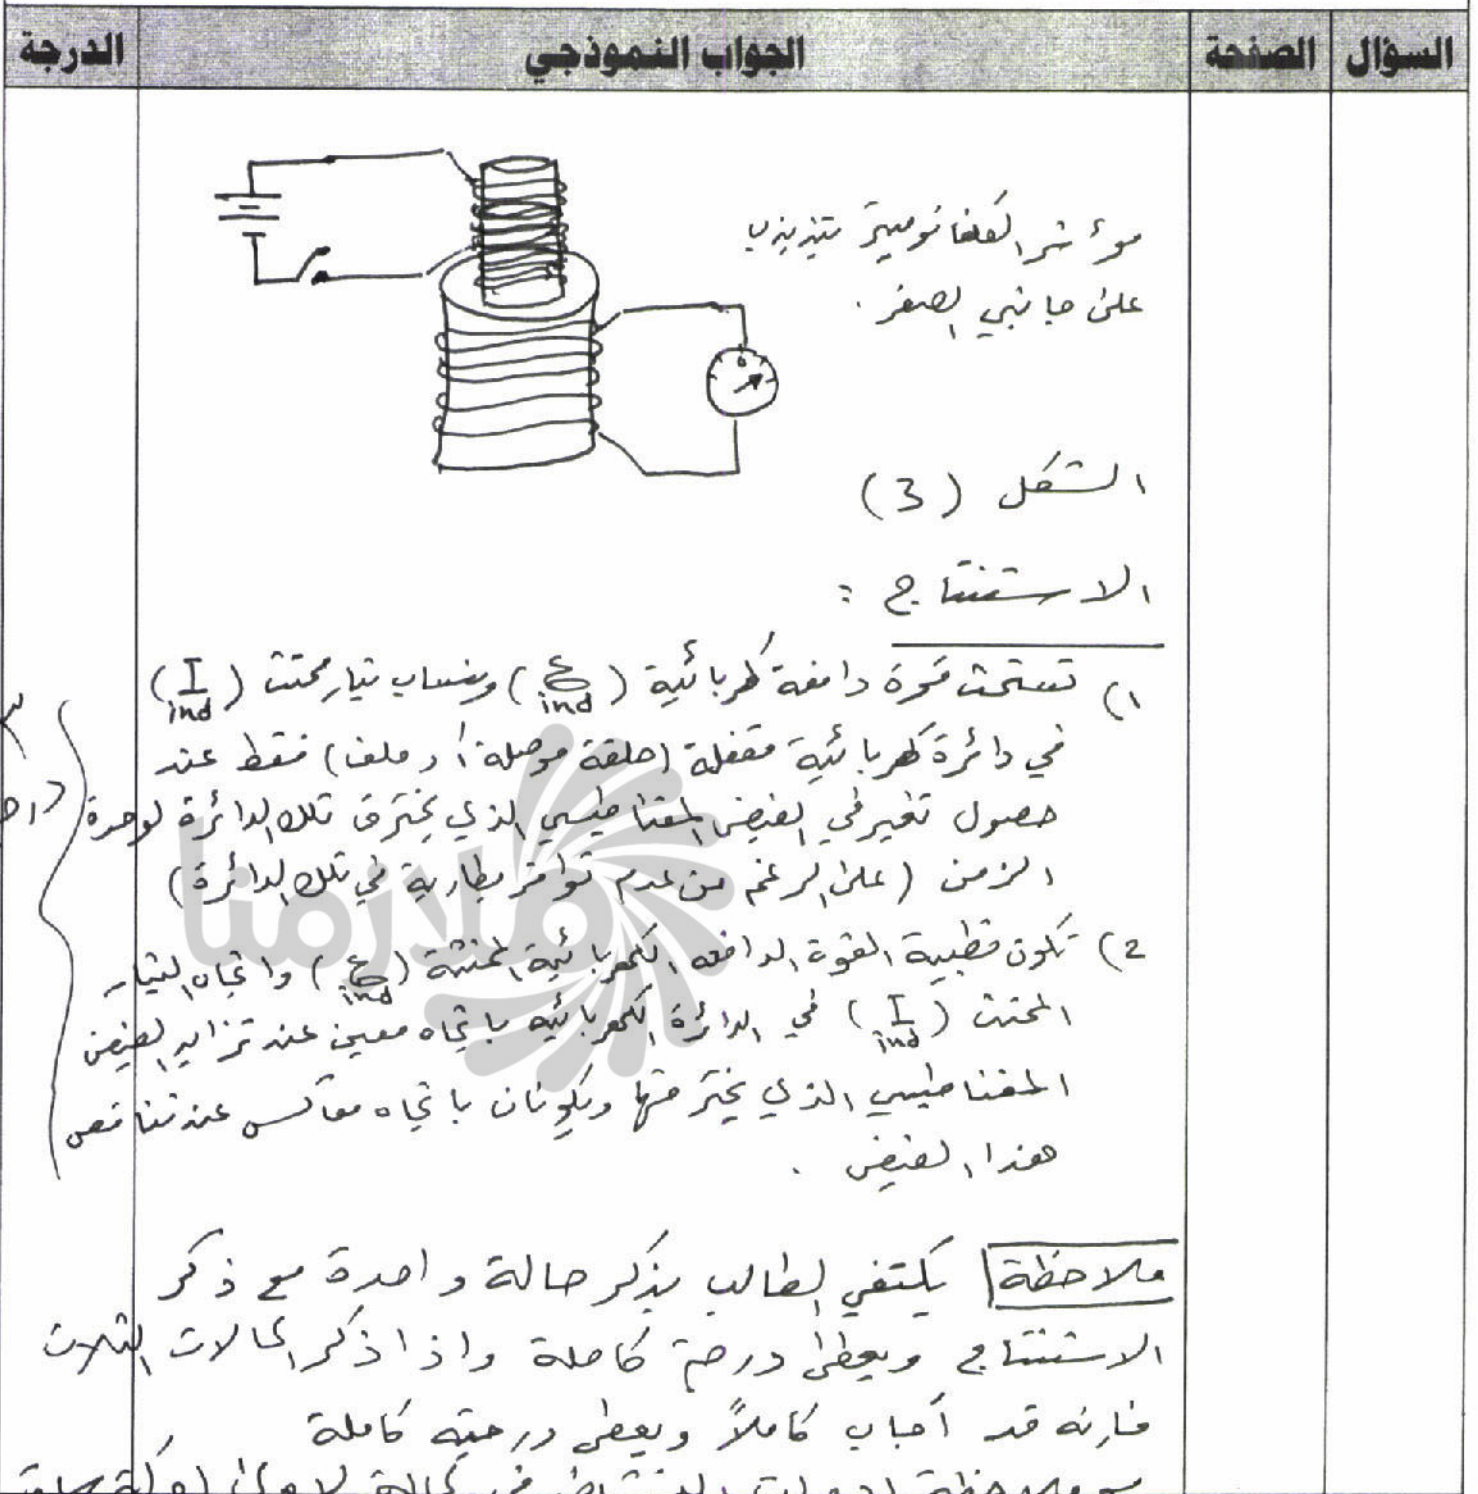 السؤال الصفحة الجواب النموذجي الدرجة
مؤشر الكلفانوميتر يتذبذب
على جانبي الصفر .
الشكل (3)
الاستنتاج :
1) تستحث قوة دافعة كهربائية (ε ind) وينساب تيار محتث (I ind)
في دائرة كهربائية مقفلة (حلقة موصلة أو ملف) فقط عند
حصول تغير في الفيض المغناطيسي الذي يخترق تلك الدائرة لوحدة
الزمن (على الرغم من عدم توافر بطارية في تلك الدائرة)
2) تكون قطبية القوة الدافعه الكهربائية المحتثة (ε ind) واتجاه التيار
المحتث (I ind) في الدائرة الكهربائية باتجاه معين عند تزايد الفيض
المغناطيسي الذي يخترقها ويكونان باتجاه معاكس عند تناقص
هذا الفيض .
ملاحظة يكتفي الطالب بذكر حالة واحدة مع ذكر
الاستنتاج ويعطى درجة كاملة واذا ذكر الحالات الثلاث
فإنه قد أجاب كاملاً ويعطى درجته كاملة
ملازمنا